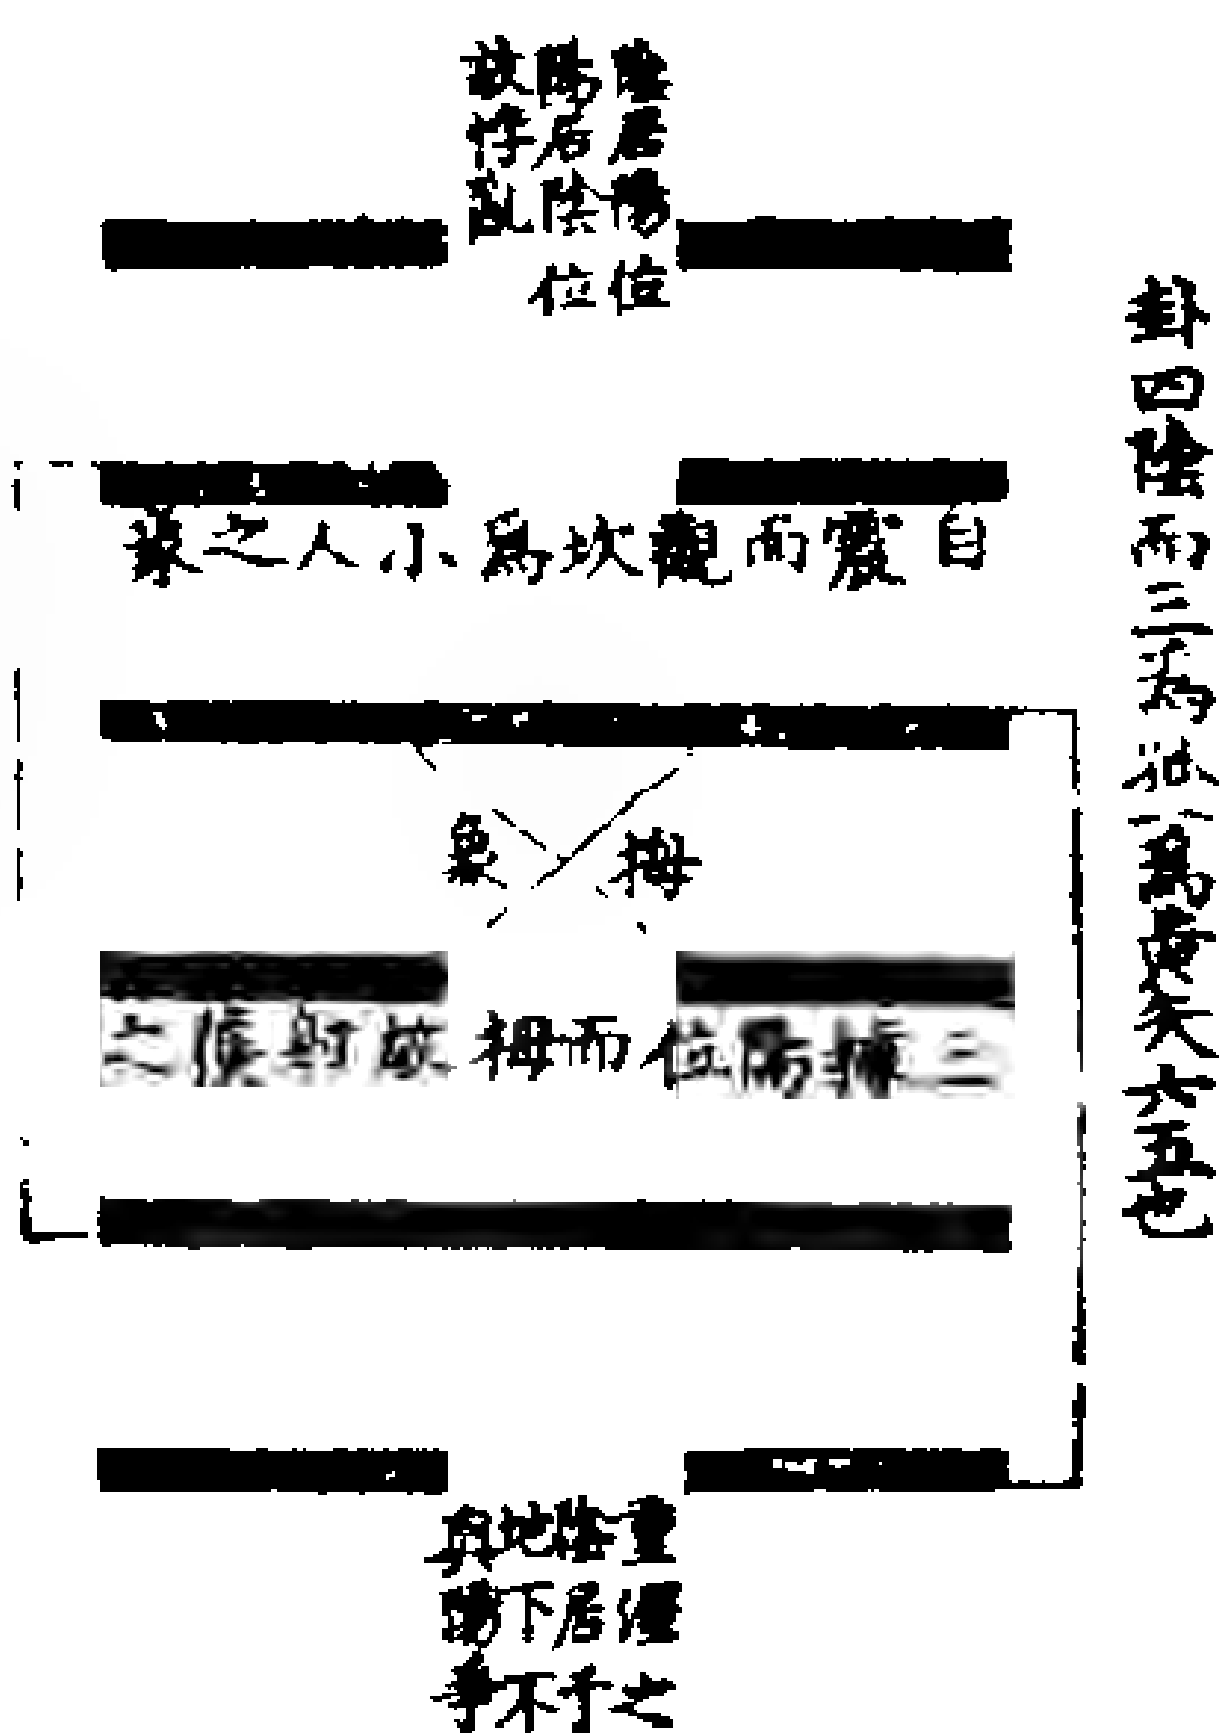 卦四陰而三为狐一爲黄矢六五也
陰居陽位
陽居陰位
故悖乱
自震而觀坎爲小人之象
拇象
三據陽位而拇故射之
重溼之
陰居于
地下不
與陽爭